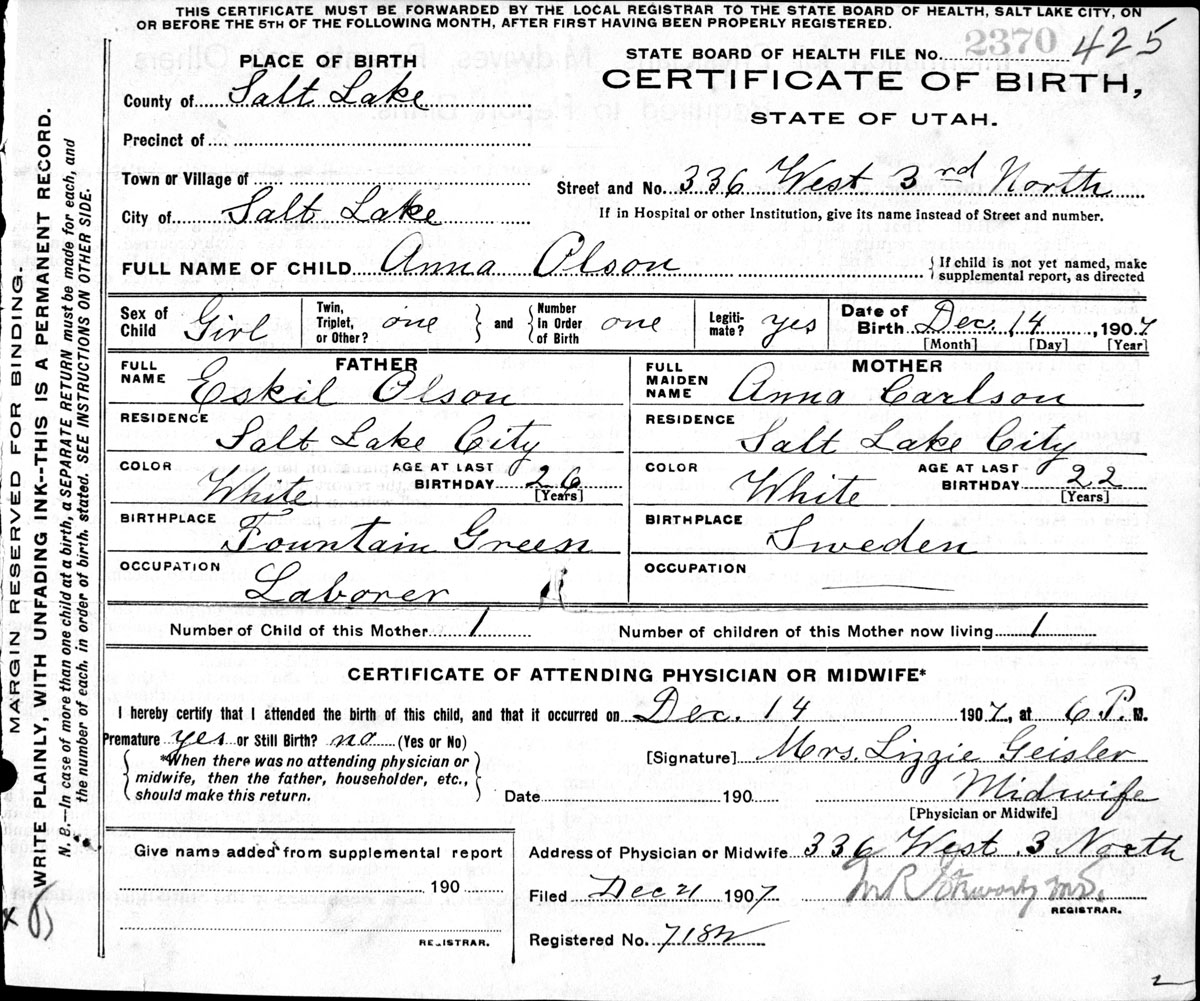 THIS CERTIFICATE MUST BE FORWARDED BY THE LOCAL REGISTRAR TO THE STATE BOARD OF HEALTH, SALT LAKE CITY, ON
OR BEFORE THE 5TH OF THE FOLLOWING MONTH, AFTER FIRST HAVING BEEN PROPERLY REGISTERED.
STATE BOARD OF HEALTH FILE No. 2370 425
PLACE OF BIRTH
CERTIFICATE OF BIRTH,
STATE OF UTAH.
County of Salt Lake
Precinct of
Town or Village of
Street and No. 336 West 3rd North
City of Salt Lake
If in Hospital or other Institution, give its name instead of Street and number.
FULL NAME OF CHILD Anna Olson
{If child is not yet named, make
supplemental report, as directed
Sex of Child Girl Twin, Triplet, or Other? one } and { Number In Order of Birth one Legiti- mate? yes Date of Birth Dec. 14, 1907
[Month] [Day] [Year]
FATHER
FULL NAME Eskil Olson
RESIDENCE Salt Lake City
COLOR White AGE AT LAST BIRTHDAY 26
[Years]
BIRTHPLACE Fountain Green
OCCUPATION Laborer
MOTHER
FULL MAIDEN NAME Anna Carlson
RESIDENCE Salt Lake City
COLOR White AGE AT LAST BIRTHDAY 22
[Years]
BIRTHPLACE Sweden
OCCUPATION —
Number of Child of this Mother 1 Number of children of this Mother now living 1
CERTIFICATE OF ATTENDING PHYSICIAN OR MIDWIFE*
I hereby certify that I attended the birth of this child, and that it occurred on Dec. 14 1907, at 6 P. M.
Premature yes or Still Birth? no (Yes or No)
[Signature] Mrs. Lizzie Geisler
*When there was no attending physician or
midwife, then the father, householder, etc.,
should make this return.
Date 190 Midwife
[Physician or Midwife]
Give name added from supplemental report
190
REGISTRAR.
Address of Physician or Midwife 336 West 3 North
Filed Dec 21 1907 M R
REGISTRAR.
Registered No.
MARGIN RESERVED FOR BINDING.
WRITE PLAINLY, WITH UNFADING INK--THIS IS A PERMANENT RECORD.
N. B.--In case of more than one child at a birth, a SEPARATE RETURN must be made for each, and
the number of each, in order of birth, stated. SEE INSTRUCTIONS ON OTHER SIDE.